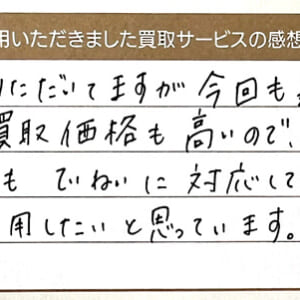 用いただきました買取サービスの感想
ただいてますが今回も
買取価格も高いので、
も ていねいに対応して
用したいと思っています。